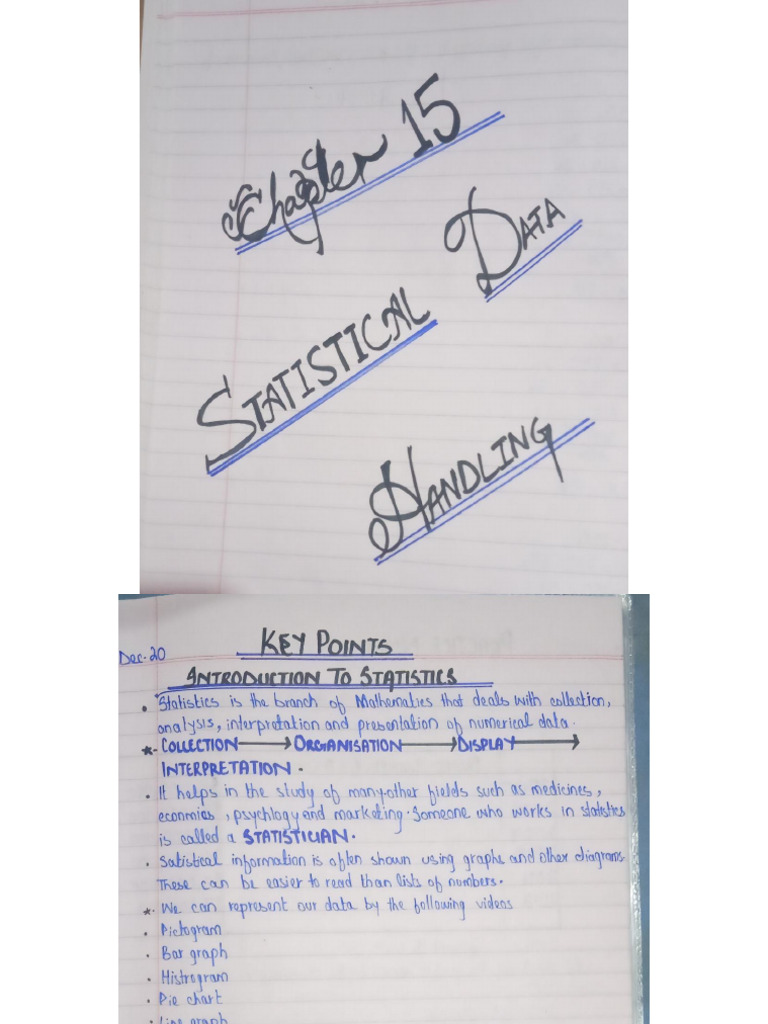 Chapter 15
STATISTICAL DATA
HANDLING
Dec-20
KEY POINTS
INTRODUCTION TO STATISTICS
• Statistics is the branch of Mathematics that deals with collection,
analysis, interpretation and presentation of numerical data.
*. COLLECTION → ORGANISATION → DISPLAY →
INTERPRETATION.
• It helps in the study of many other fields such as medicines,
econmies, psychlogy and marketing. Someone who works in statistics
is called a STATISTICIAN.
• Satistical information is often shown using graphs and other diagrams.
These can be easier to read than lists of numbers.
*. We can represent our data by the following videos
• Pictogram
• Bar graph
• Histrogram
• Pie chart
• Line graph